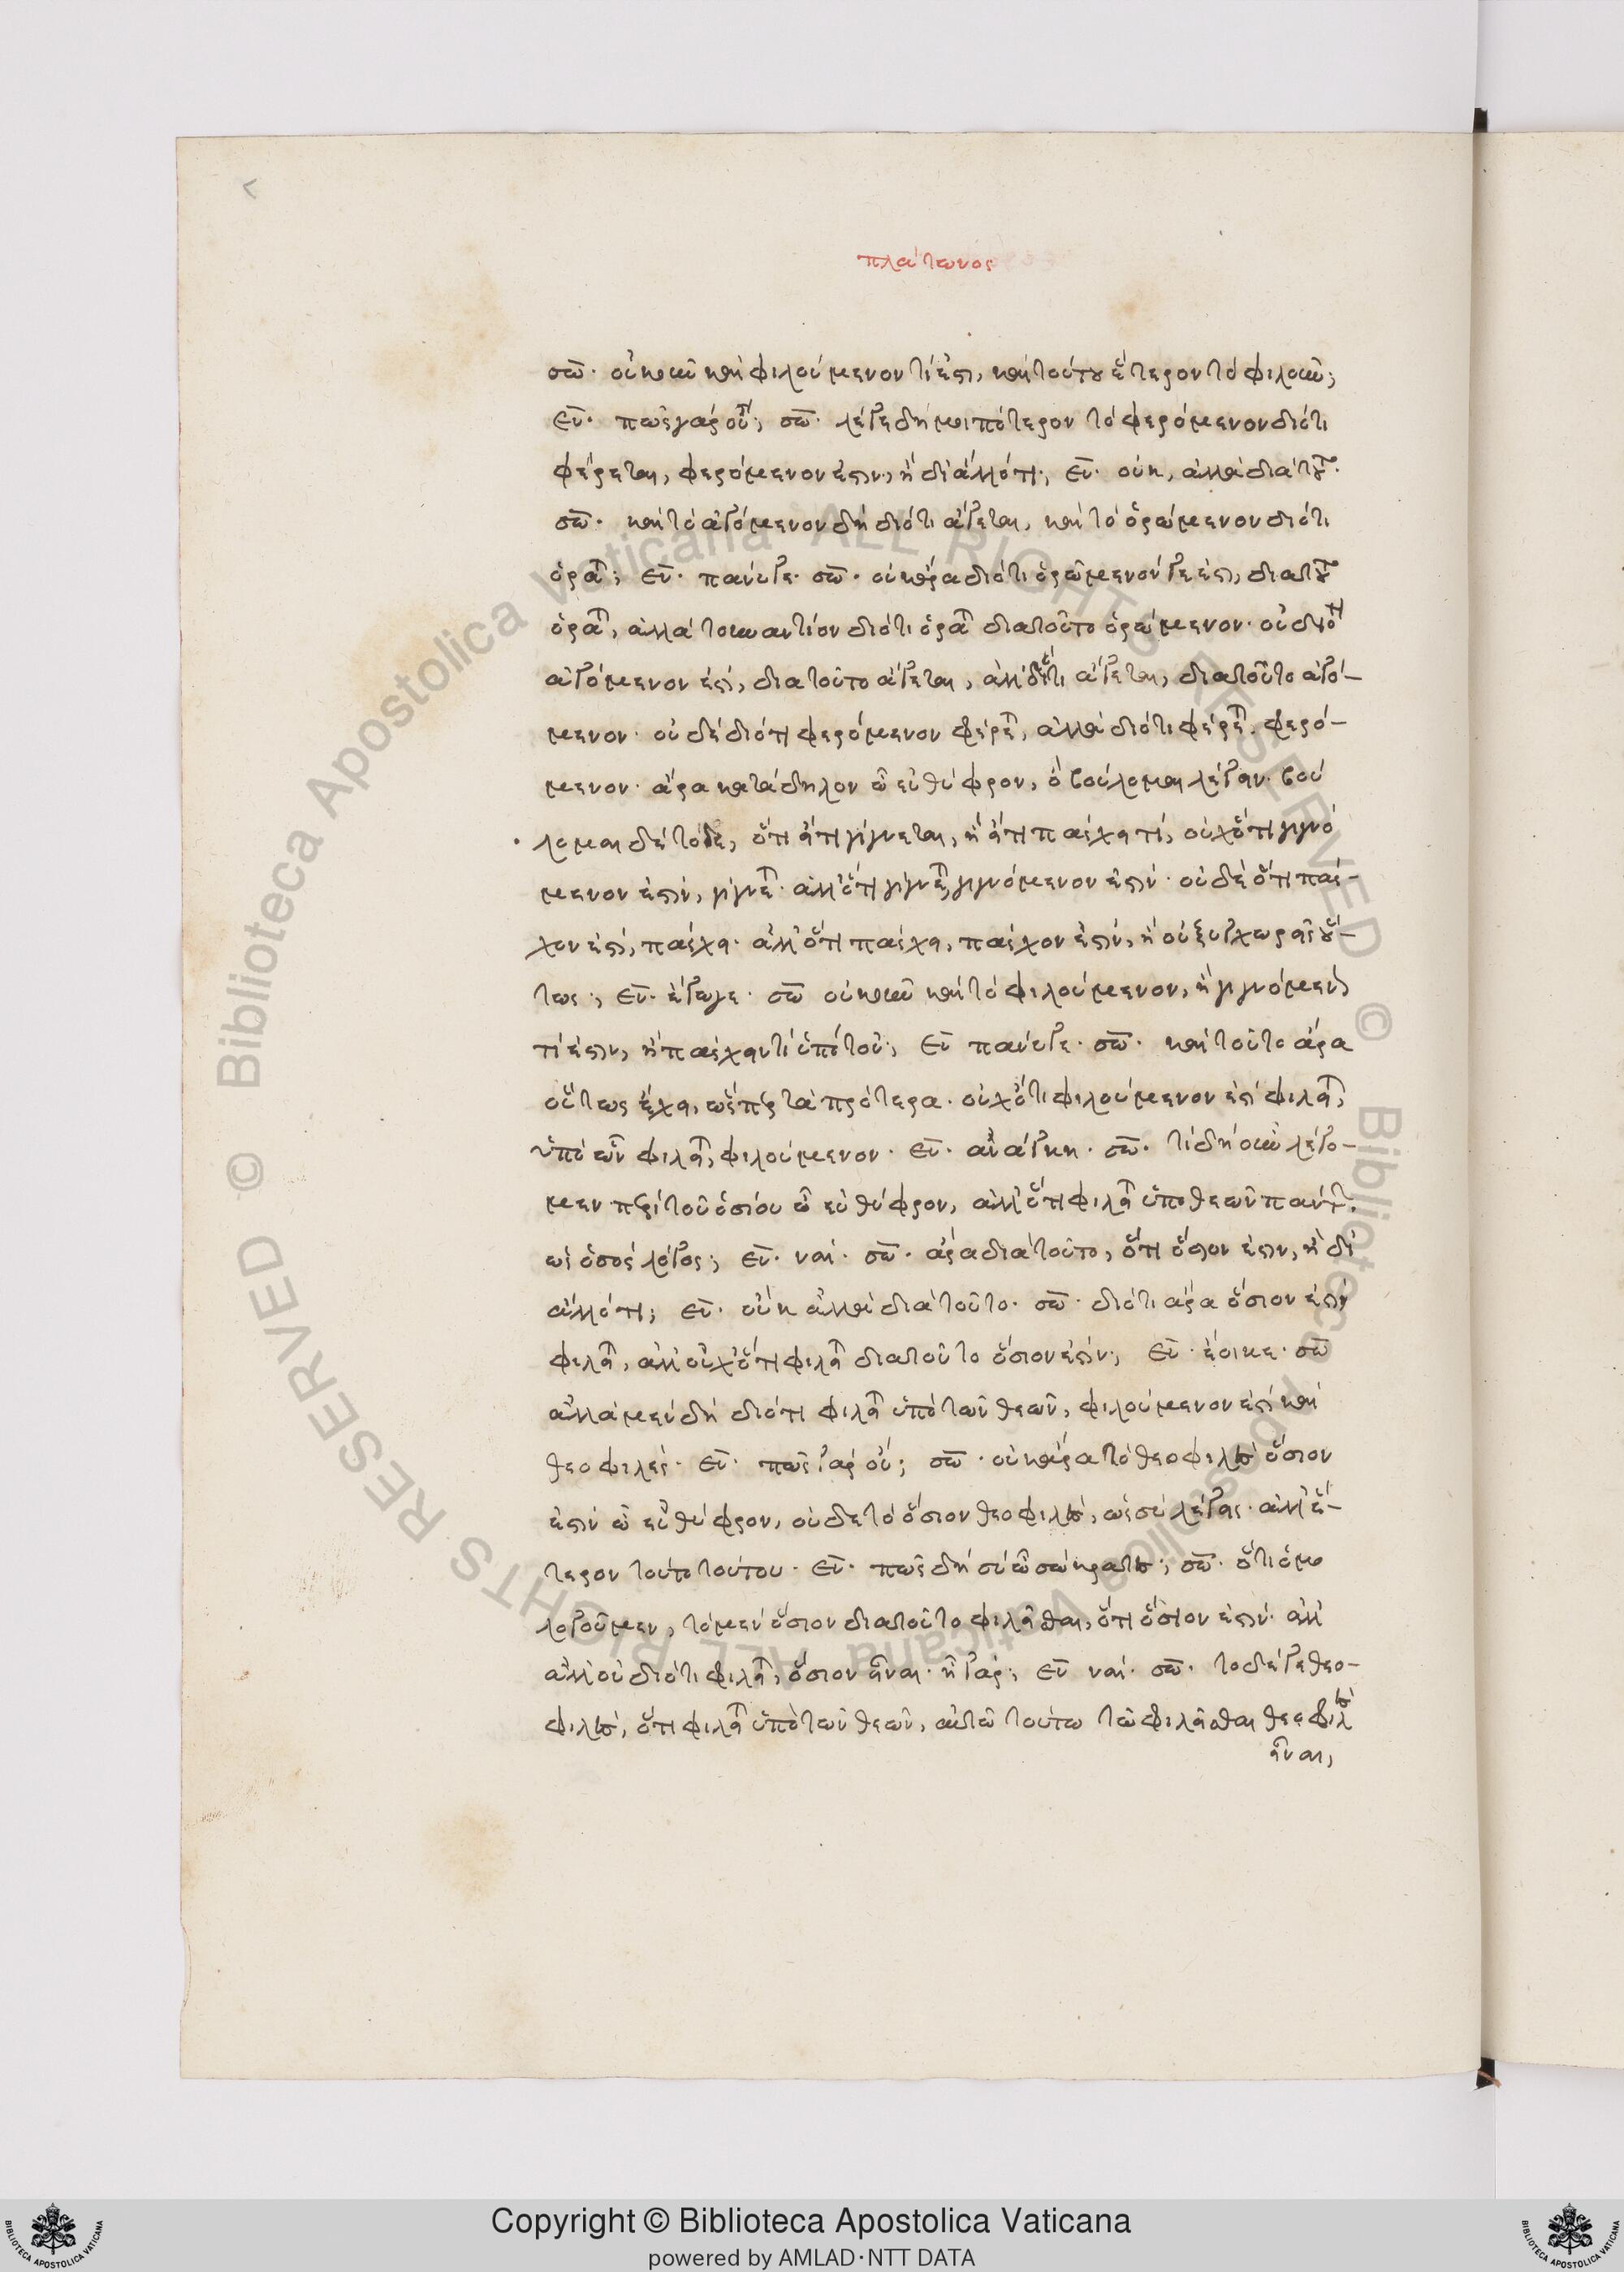 πλάτωνος
σω̅. οὐκοῦν καὶ φιλούμενον τί ἐστι, καὶ τούτου ἕτερον τὸ φιλοῦν;
ευ̅. πῶς γὰρ οὔ; σω̅. λέγε δή μοι πότερον τὸ φερόμενον διότι
φέρεται, φερόμενον ἐστιν, ἢ δι' ἄλλό τι; ευ̅. οὐκ, ἀλλὰ διὰ τοῦτο.
σω̅. καὶ τὸ ἀγόμενον δὴ διότι ἄγεται, καὶ τὸ ὁρώμενον διότι
ὁρᾶται; ευ̅. πάνυ γε. σω̅. οὐκ ἄρα διότι ὁρώμενόν γε ἐστι, διὰ τοῦτο
ὁρᾶται, ἀλλὰ τοὐναντίον διότι ὁρᾶται διὰ τοῦτο ὁρώμενον. οὐδὲ διότι
ἀγόμενον ἐστί, διὰ τοῦτο ἄγεται, ἀλλὰ διότι ἄγεται, διὰ τοῦτο ἀγό-
μενον. οὐδὲ διότι φερόμενον φέρεται, ἀλλὰ διότι φέρεται, φερό-
μενον. ἆρα κατάδηλον ὦ εὐθύφρον, ὃ βούλομαι λέγειν. βού
λομαι δὲ τόδε, ὅτι εἴ τι γίγνεται, ἢ εἴ τι πάσχει τί, οὐχ ὅτι γιγνό
μενον ἐστίν, γίγνεται. ἀλλ' ὅτι γίγνεται, γιγνόμενον ἐστίν. οὐδὲ ὅτι πάσ-
χον ἐστί, πάσχει. ἀλλ' ὅτι πάσχει, πάσχον ἐστίν, ἢ οὐ ξυγχωρεῖς οὕ-
τως; ευ̅. ἔγωγε. σω̅ οὐκοῦν καὶ τὸ φιλούμενον, ἢ γιγνόμενόν
τί ἐστιν, ἢ πάσχον τί ὑπό του; ευ̅ πάνυ γε. σω̅. καὶ τοῦτο ἄρα
οὕτως ἔχει, ὥσπερ τὰ πρότερα. οὐχ ὅτι φιλούμενον ἐστί φιλεῖται,
ὑπὸ ὧν φιλεῖται, φιλούμενον. ευ̅. ἀνάγκη. σω̅. τί δὴ οὖν λέγο-
μεν περὶ τοῦ ὁσίου ὦ εὐθύφρον, ἄλλό τι φιλεῖται ὑπὸ θεῶν πάντων.
ὡς ὁ σὸς λόγος; ευ̅. ναί. σω̅. ἆρα διὰ τοῦτο, ὅτι ὅσιον ἐστιν, ἢ δι'
ἄλλό τι; ευ̅. οὔκ ἀλλὰ διὰ τοῦτο. σω̅. διότι ἄρα ὅσιον ἐστίν
φιλεῖται, ἀλλ' οὐχ ὅτι φιλεῖται διὰ τοῦτο ὅσιον ἐστίν; ευ̅. ἔοικε. σω̅
ἀλλὰ μὲν δὴ διότι φιλεῖται ὑπὸ τῶν θεῶν, φιλούμενον ἐστί καὶ
θεοφιλές. ευ̅. πῶς γὰρ οὔ; σω̅. οὐκ ἄρα τὸ θεοφιλὲς ὅσιον
ἐστίν ὦ εὐθύφρον, οὐδὲ τὸ ὅσιον θεοφιλὲς, ὡς σὺ λέγεις. ἀλλ' ἕ-
τερον τοῦτο τούτου. ευ̅. πῶς δὴ σὺ ὦ σώκρατες; σω̅. ὅτι ὁμο
λογοῦμεν, τὸ μὲν ὅσιον διὰ τοῦτο φιλεῖσθαι, ὅτι ὅσιον ἐστίν. ἀλλ'
ἀλλ' οὐ διότι φιλεῖται, ὅσιον εἶναι. ἦ γάρ; ευ̅ ναί. σω̅. τὸ δέ γε θεο-
φιλὲς, ὅτι φιλεῖται ὑπὸ τῶν θεῶν, αὐτῶ τούτω τῶ φιλεῖσθαι θεοφιλὲς
εἶναι,
Copyright © Biblioteca Apostolica Vaticana
powered by AMLAD·NTT DATA
© Biblioteca Apostolica Vaticana ALL RIGHTS RESERVED
© Biblioteca Apostolica Vaticana ALL RIGHTS RESERVED